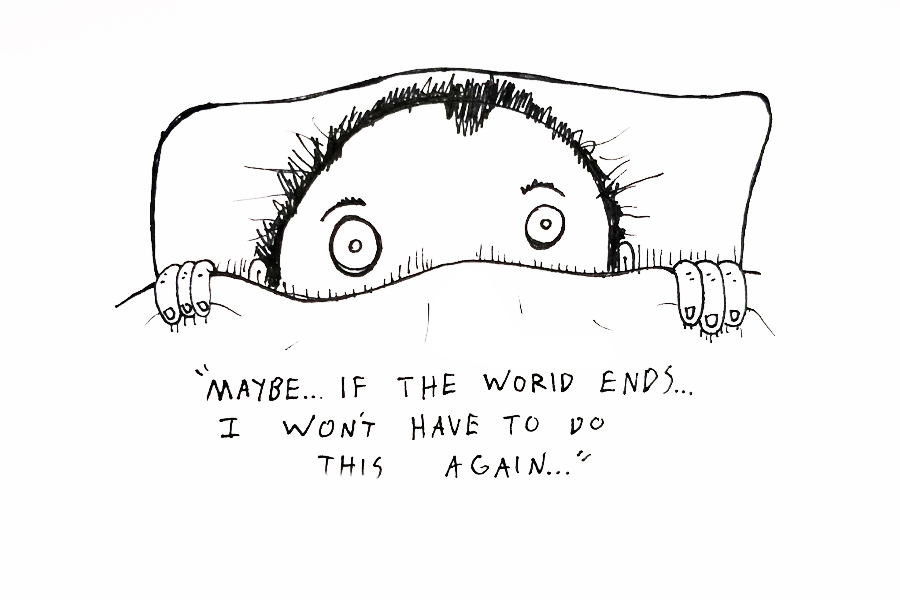 "MAYBE... IF THE WORLD ENDS...
I WON'T HAVE TO DO
THIS AGAIN..."